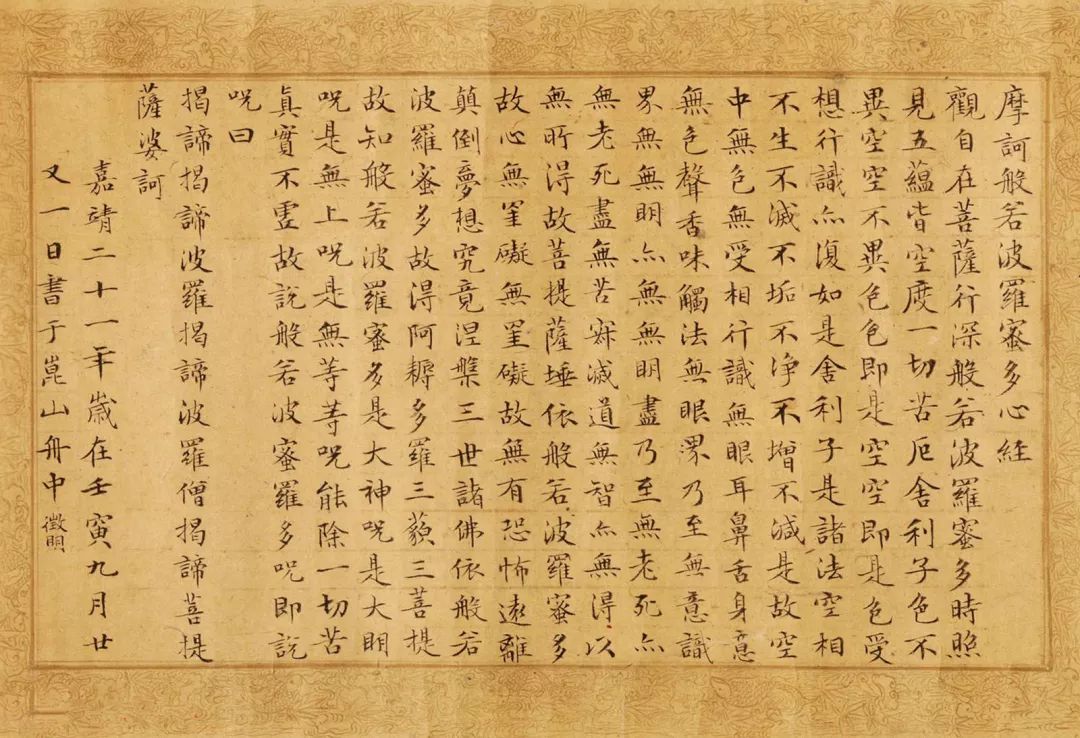 摩訶般若波羅蜜多心経
觀自在菩薩行深般若波羅蜜多時照
見五蘊皆空度一切苦厄舍利子色不
異空空不異色色即是空空即是色受
想行識亦復如是舍利子是諸法空相
不生不滅不垢不淨不增不減是故空
中無色無受相行識無眼耳鼻舌身意
無色聲香味觸法無眼界乃至無意識
界無無明亦無無明盡乃至無老死亦
無老死盡無苦寂滅道無智亦無得以
無所得故菩提薩埵依般若波羅蜜多
故心無罣礙無罣礙故無有恐怖遠離
顛倒夢想究竟涅槃三世諸佛依般若
波羅蜜多故得阿耨多羅三藐三菩提
故知般若波羅蜜多是大神咒是大明
咒是無上咒是無等等咒能除一切苦
真實不虛故說般若波蜜羅多咒即說
咒曰
揭諦揭諦波羅揭諦波羅僧揭諦菩提
薩婆訶
嘉靖二十一年歲在壬寅九月廿
又一日書于崑山舟中徵明